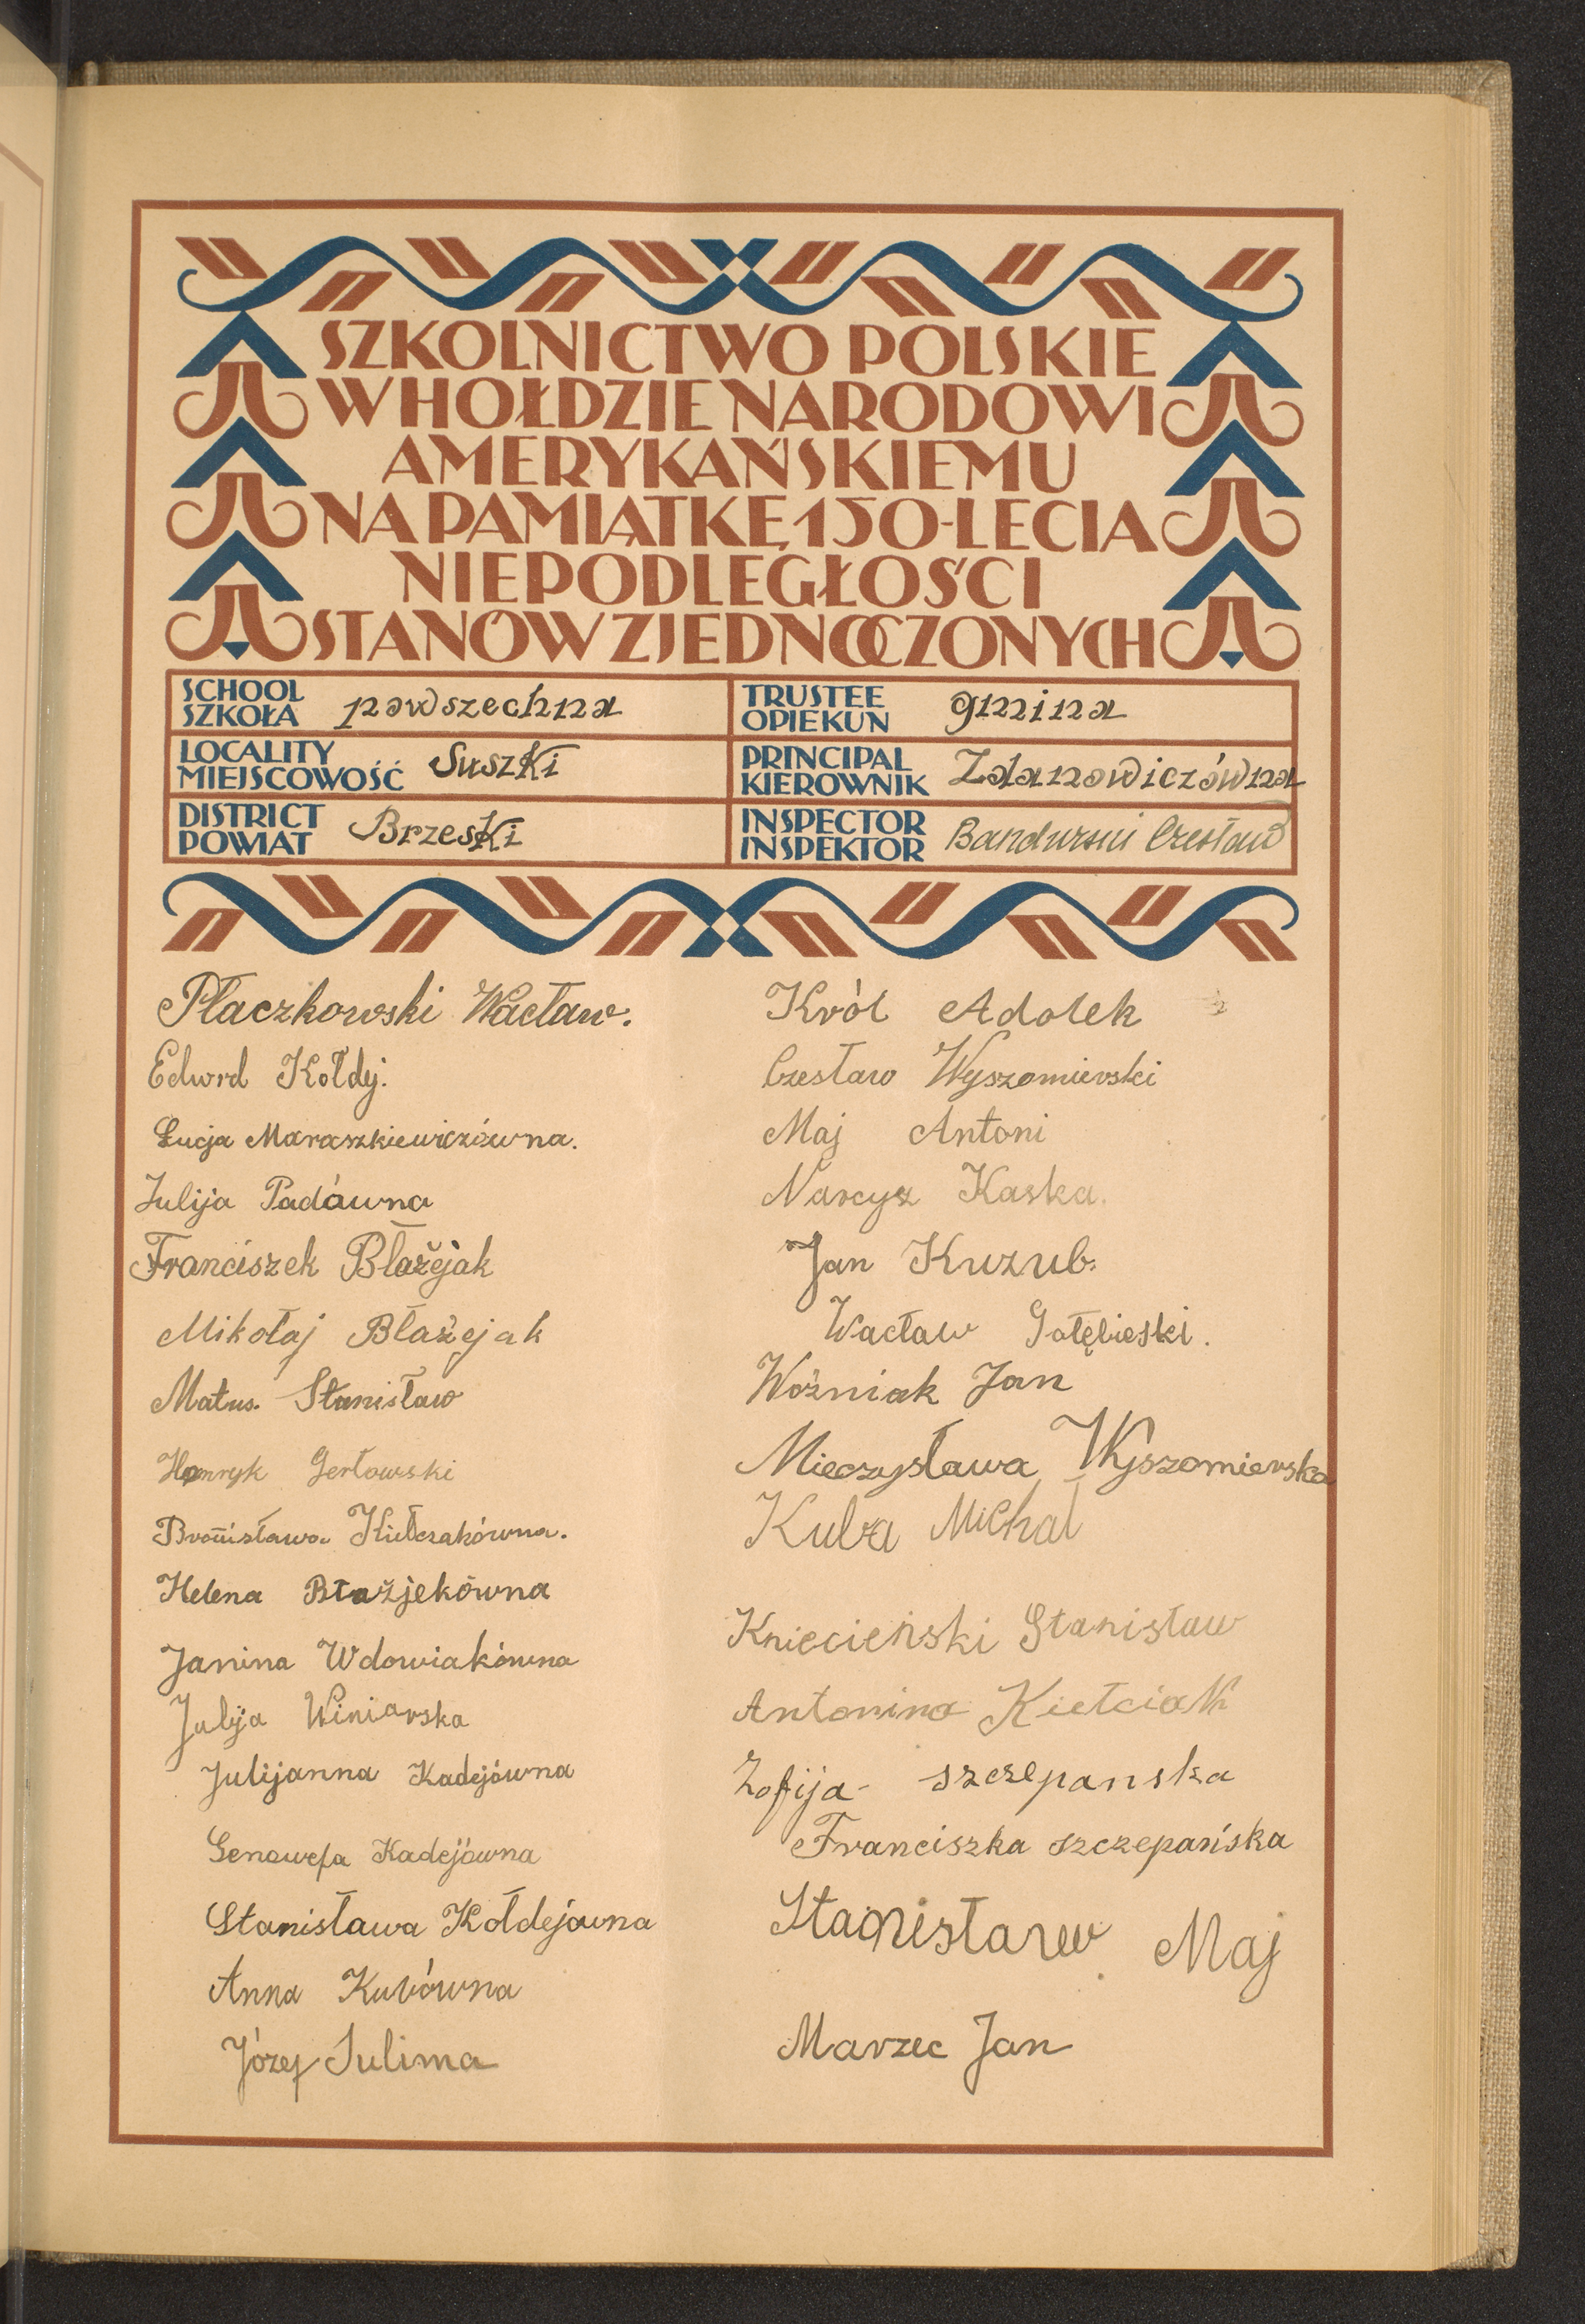 SZKOLNICTWO POLSKIE
W HOŁDZIE NARODOWI
AMERYKAŃSKIEMU
NA PAMIĄTKĘ 150-LECIA
NIEPODLEGŁOŚCI
STANÓW ZJEDNOCZONYCH
SCHOOL
SZKOŁA powszechna
TRUSTEE
OPIEKUN gmina
LOCALITY
MIEJSCOWOŚĆ Suszki
PRINCIPAL
KIEROWNIK Zdanowiczówna
DISTRICT
POWIAT Brzeski
INSPECTOR
INSPEKTOR Bandurski Czesław
Płaczkowski Wacław.
Edwrd Kołdy.
Łucja Maraszkiewiczówna.
Julija Padówna
Franciszek Błażejak
Mikołaj Błażejak
Matus. Stanisław
Henryk Gerłowski
Bronisława Kiełczakówna.
Helena Błażjekówna
Janina Wdowiakówna
Julija Winiarska
Julijanna Kadejówna
Genowefa Kadejówna
Stanisława Kołdejówna
Anna Kubówna
Józef Sulima
Król Adolek
Czesław Wyszomierski
Maj Antoni
Narcyz Kaska.
Jan Kuzub.
Wacław Gołębieski.
Woźniak Jan
Mieczysława Wyszomierska
Kuba Michał
Kniecieński Stanisław
Antonina Kiełciak
Zofija - szczepanska
Franciszka szczepańska
Stanisław Maj
Marzec Jan